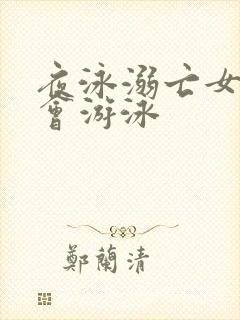 夜泳溺亡女
會游泳
鄭蘭清